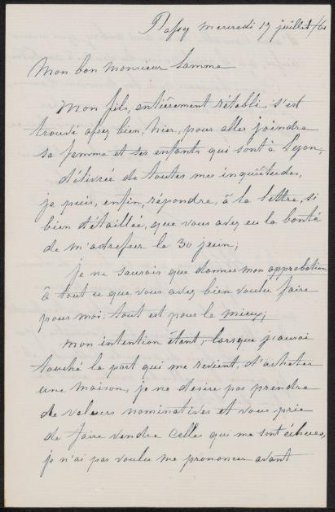 Passy mercredi 17 juillet/61
Mon bon monsieur Lamme
Mon fils, entièrement rétabli, s'est
trouvé assez bien, hier, pour aller joindre
sa femme et ses enfants qui sont à Lyon,
délivrée de toutes mes inquiétudes,
je puis, enfin, répondre, à la lettre, si
bien détaillée, que vous avez eu la bonté
de m'adresser le 30 juin,
je ne saurais que donner mon approbation
à tout ce que vous avez bien voulu faire
pour moi. tout est pour le mieux,
mon intention étant, lorsque j'aurai
touché la part qui me revient, d'acheter
une maison, je ne désire pas prendre
de valeurs nominatives et vous prie
de faire vendre celle qui me sont échues,
je n'ai pas voulu me prononcer avant